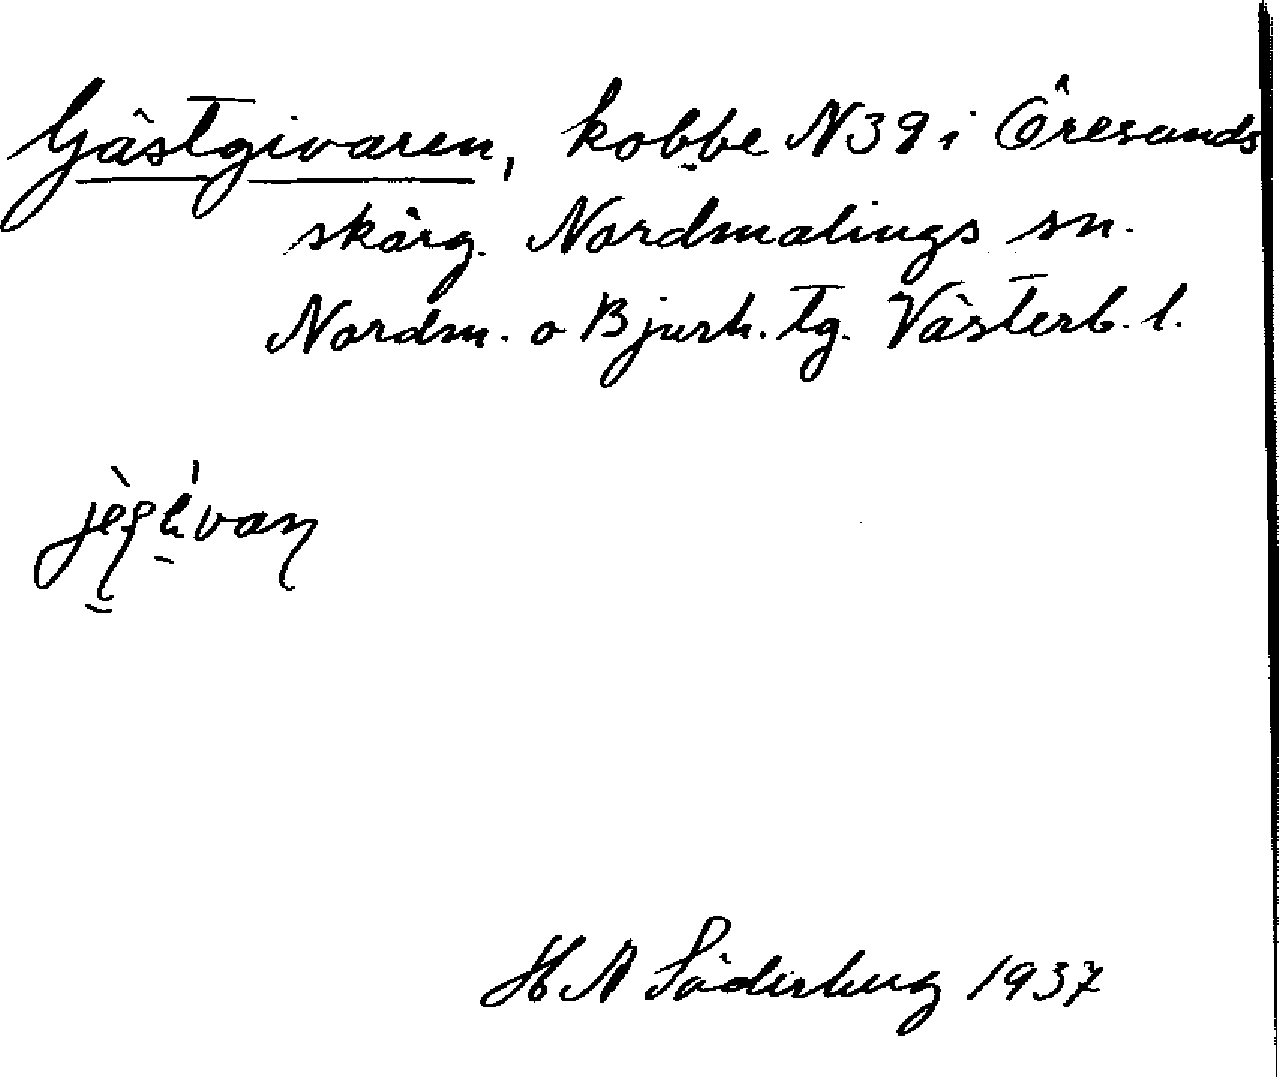 Gästgivaren, kobbe N39 i Öresunds
skärg. Nordmalings sn.
Nordm. o Bjurh. tg. Västerb. l.
H N Söderberg 1937